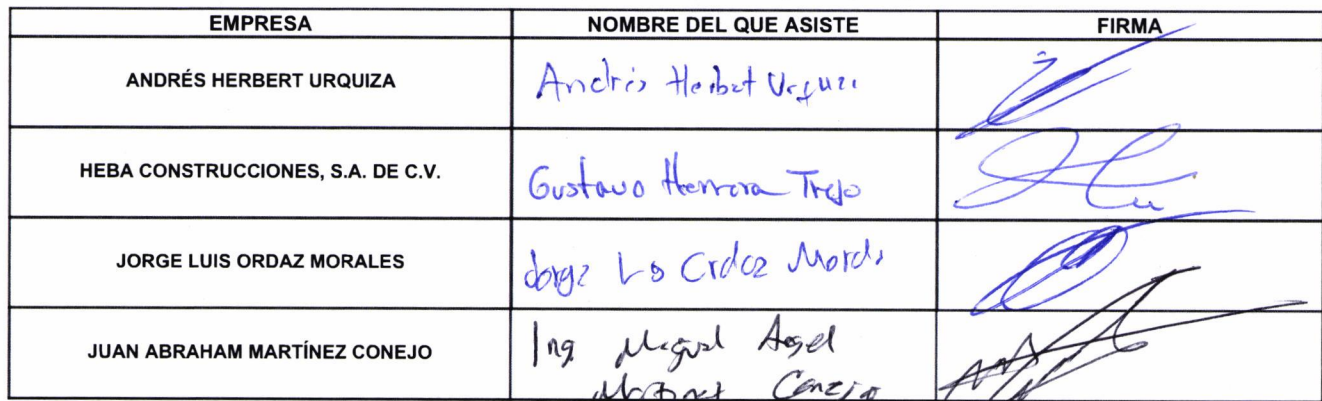 EMPRESA NOMBRE DEL QUE ASISTE FIRMA
ANDRÉS HERBERT URQUIZA Andrés Herbert
HEBA CONSTRUCCIONES, S.A. DE C.V. Gustavo Herrera Trejo
JORGE LUIS ORDAZ MORALES Jorge
JUAN ABRAHAM MARTÍNEZ CONEJO Ing Miguel Angel